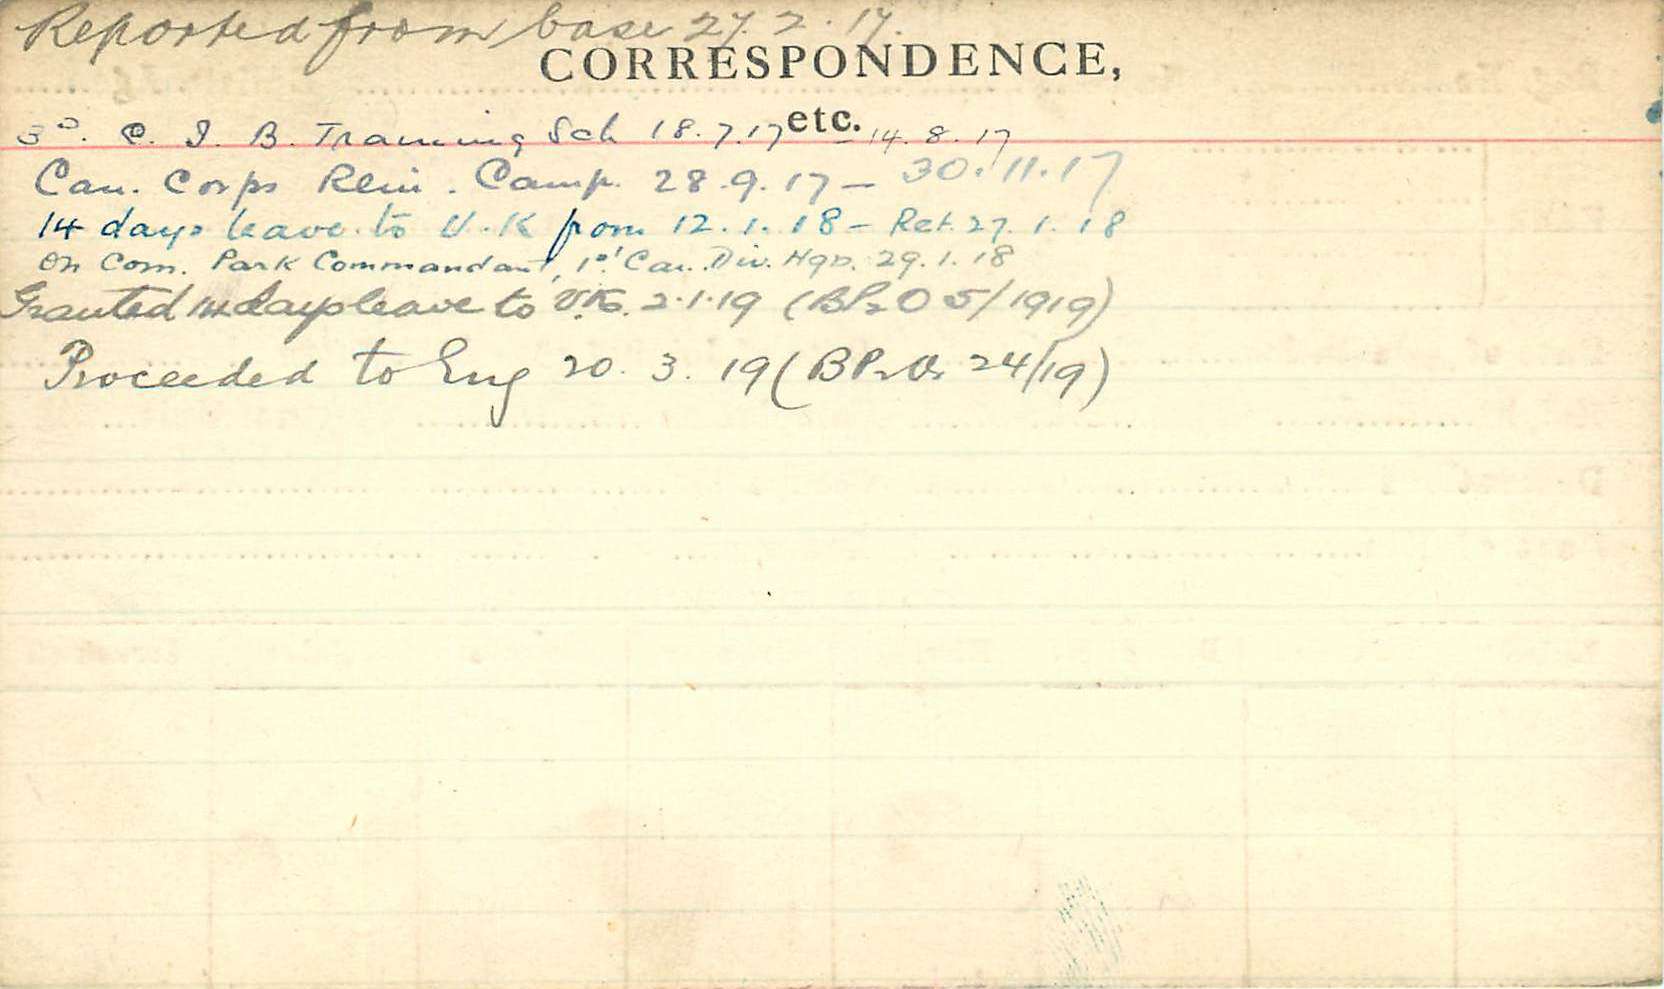 Reported from base 27.2.17.
CORRESPONDENCE,
etc.
3ᴰ. C. I. B. Training Sch 18.7.17 – 14.8.17
Can. Corps Rein. Camp. 28.9.17 – 30.11.17
14 days leave to U.K from 12.1.18 – Ret. 27.1.18
On Com. Park Commandant, 1st Can. Div. Hqrs. 29.1.18
Granted 14 days leave to U.K. 2.1.19 (BPt2O 5/1919)
Proceeded to Eng 20.3.19 (BPt2O. 24/19)